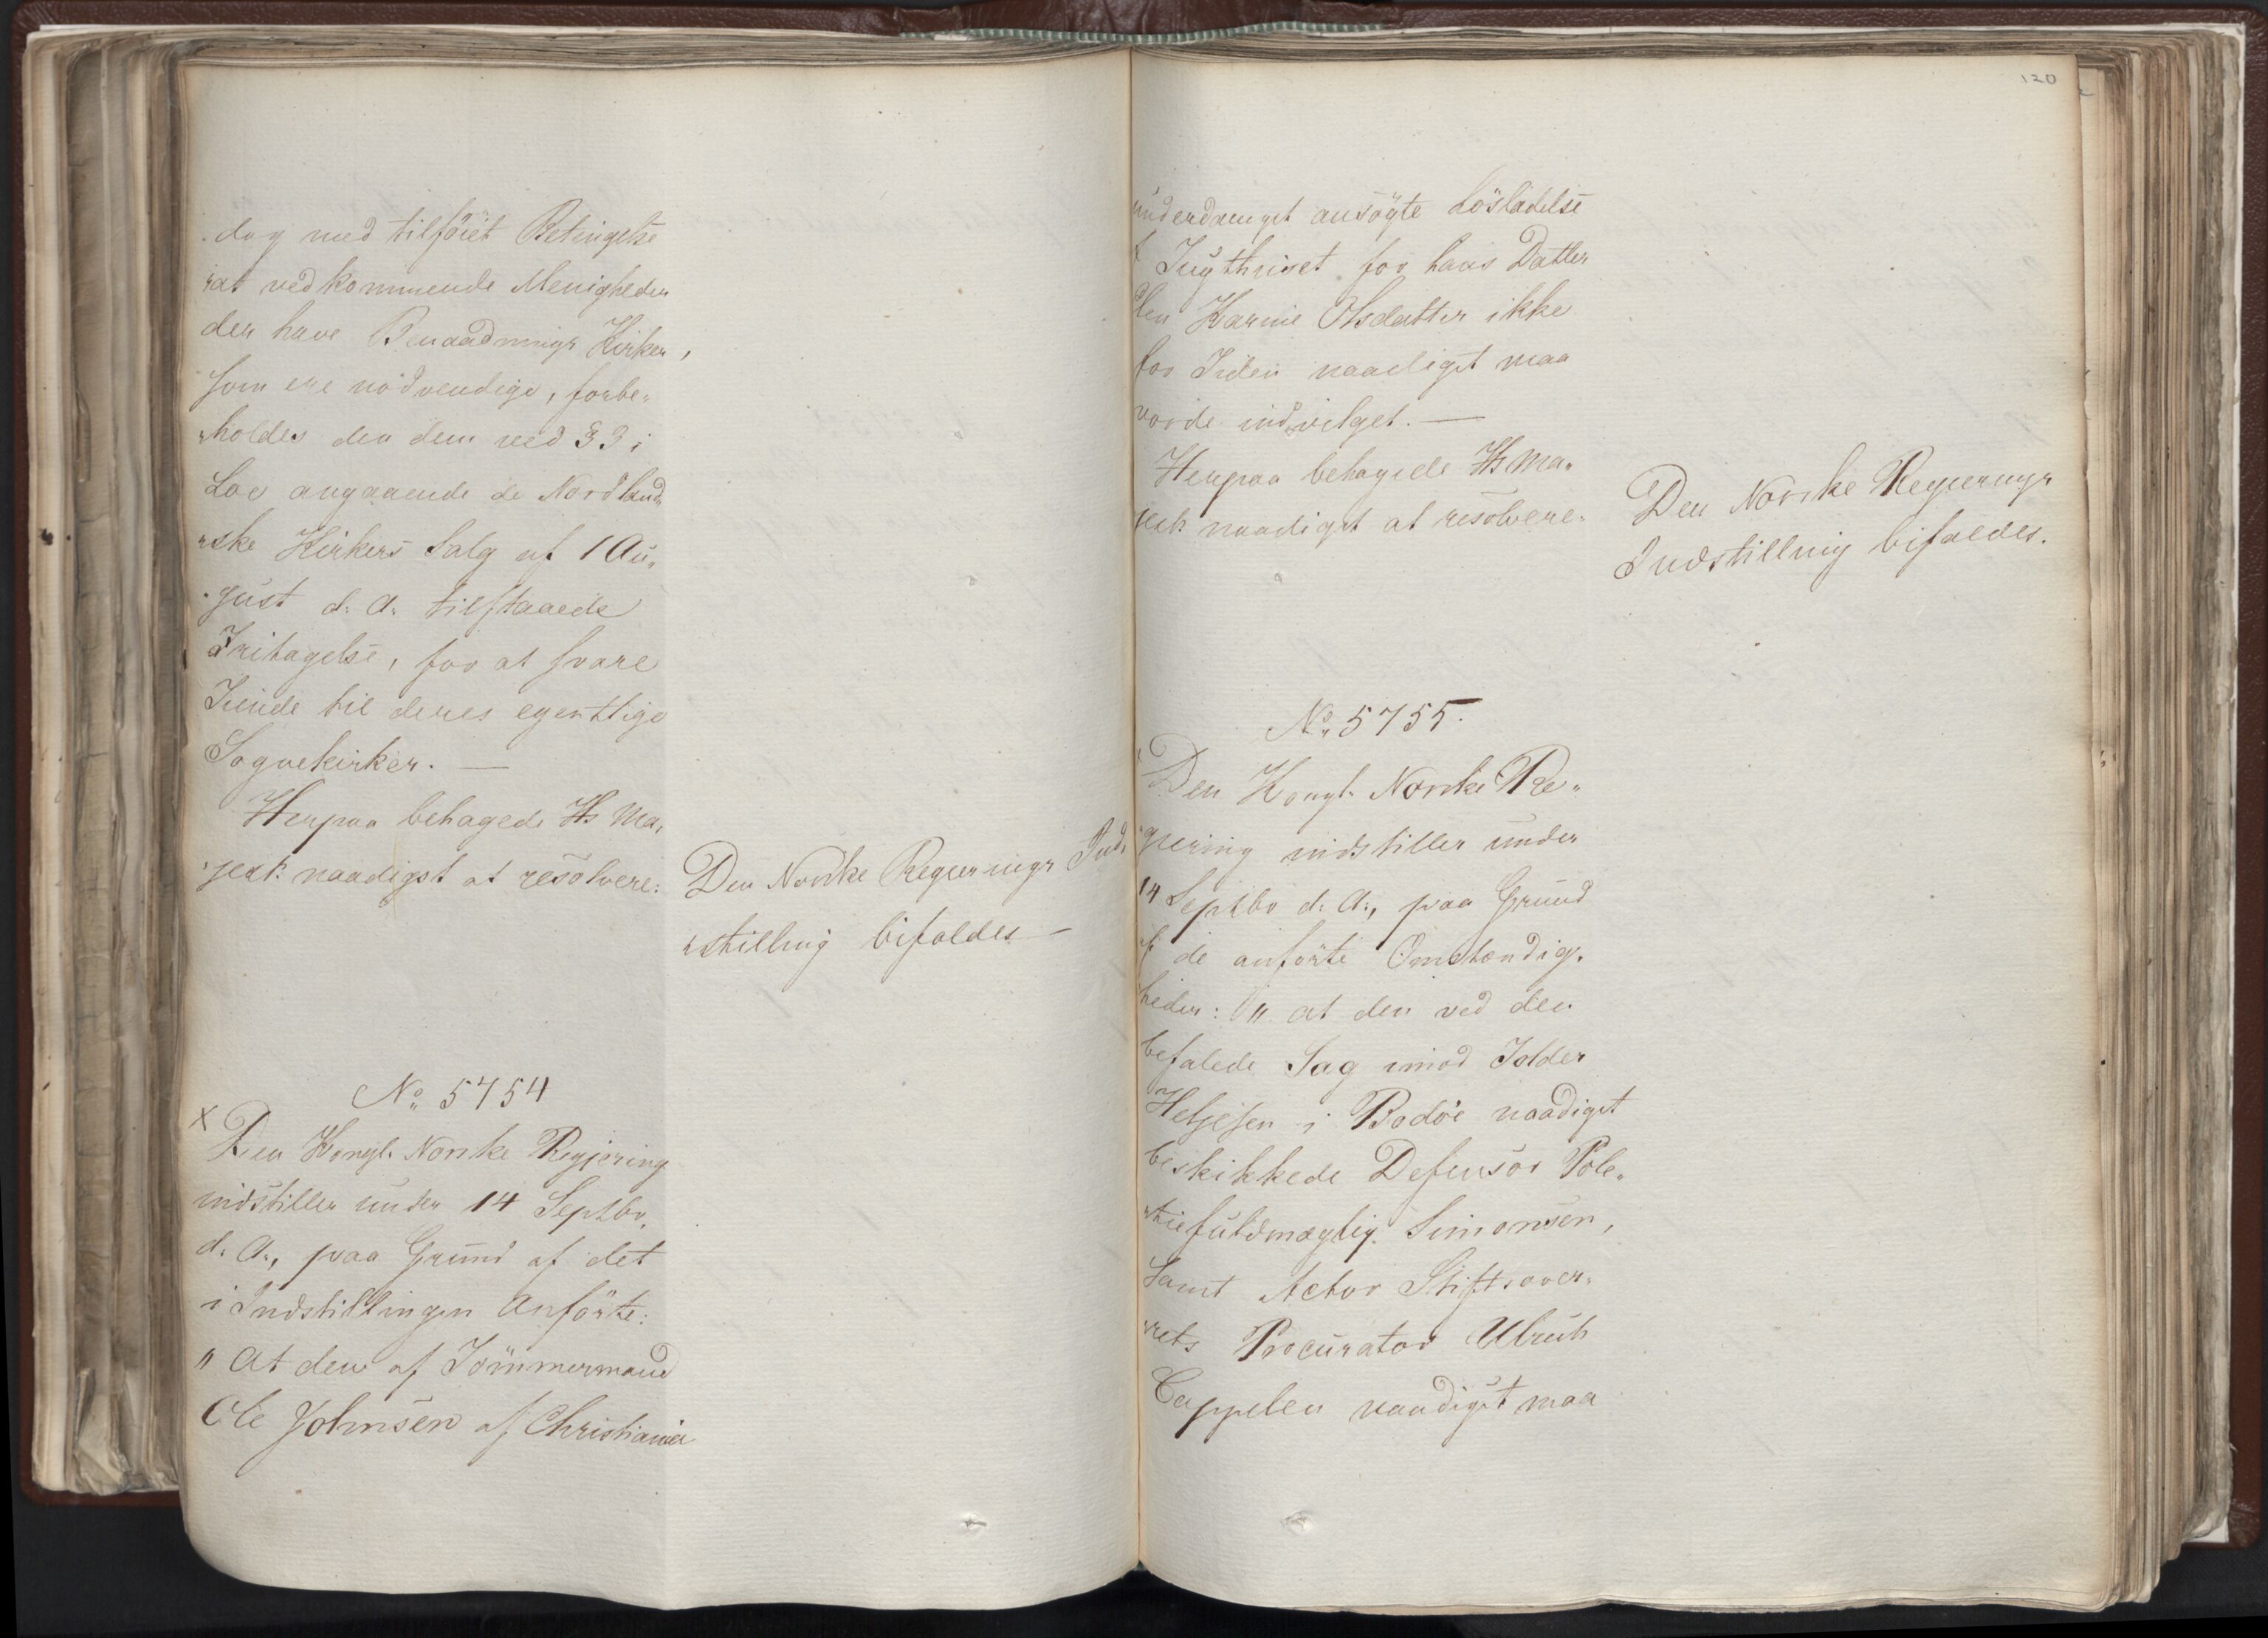 dog med tilföiet Betingelse
"at vedkommende Menigheder
der have Benaadnings Kirker,
som ere nödvendige, forbe„
"holdes den dem ved § 3 i
Lov angaaende de Nordland„
"ske Kirkers Salg af 1 Au„
"gust d: A: tilstaaede
Fritagelse, for at svare
Tiende til deres egentlige
Sognekirker. —
Herpaa behagede Hs Ma„
"jest: naadigst at resolvere:
Den Norske Regjerings Ind„
"stilling bifaldes —
No. 5754
x
Den Kongl. Norske Regjering
indstiller under 14 Septbr.
d: A:, paa Grund af det
i Indstillingen Anförte:
" At den af Tömmermand
Ole Johnsen af Christiania
120
underdanigst ansögte Lösladelse
f Tugthuset for hans Datter
Karine Olsdatter ikke
for Tiden naadigst maa
vorde indvilget. —
Herpaa behagede Hs Ma„
jest: naadigst at resolvere:
Den Norske Regjerings
Indstilling bifaldes.
No. 5755.
Den Kongl. Norske Re„
"gjering indstiller under
14 Septbr d: A:, paa Grund
f de anförte Omstændig„
heder: " at den ved den
befalede Sag imod Isolder
Heljesen i Bodöe naadigst
beskikkede Defensor Pole„
"tiefuldmægtig Simonsen,
samt Actor Stiftsover„
"rets Procurator Ulrich
Cappelen naadigst maa